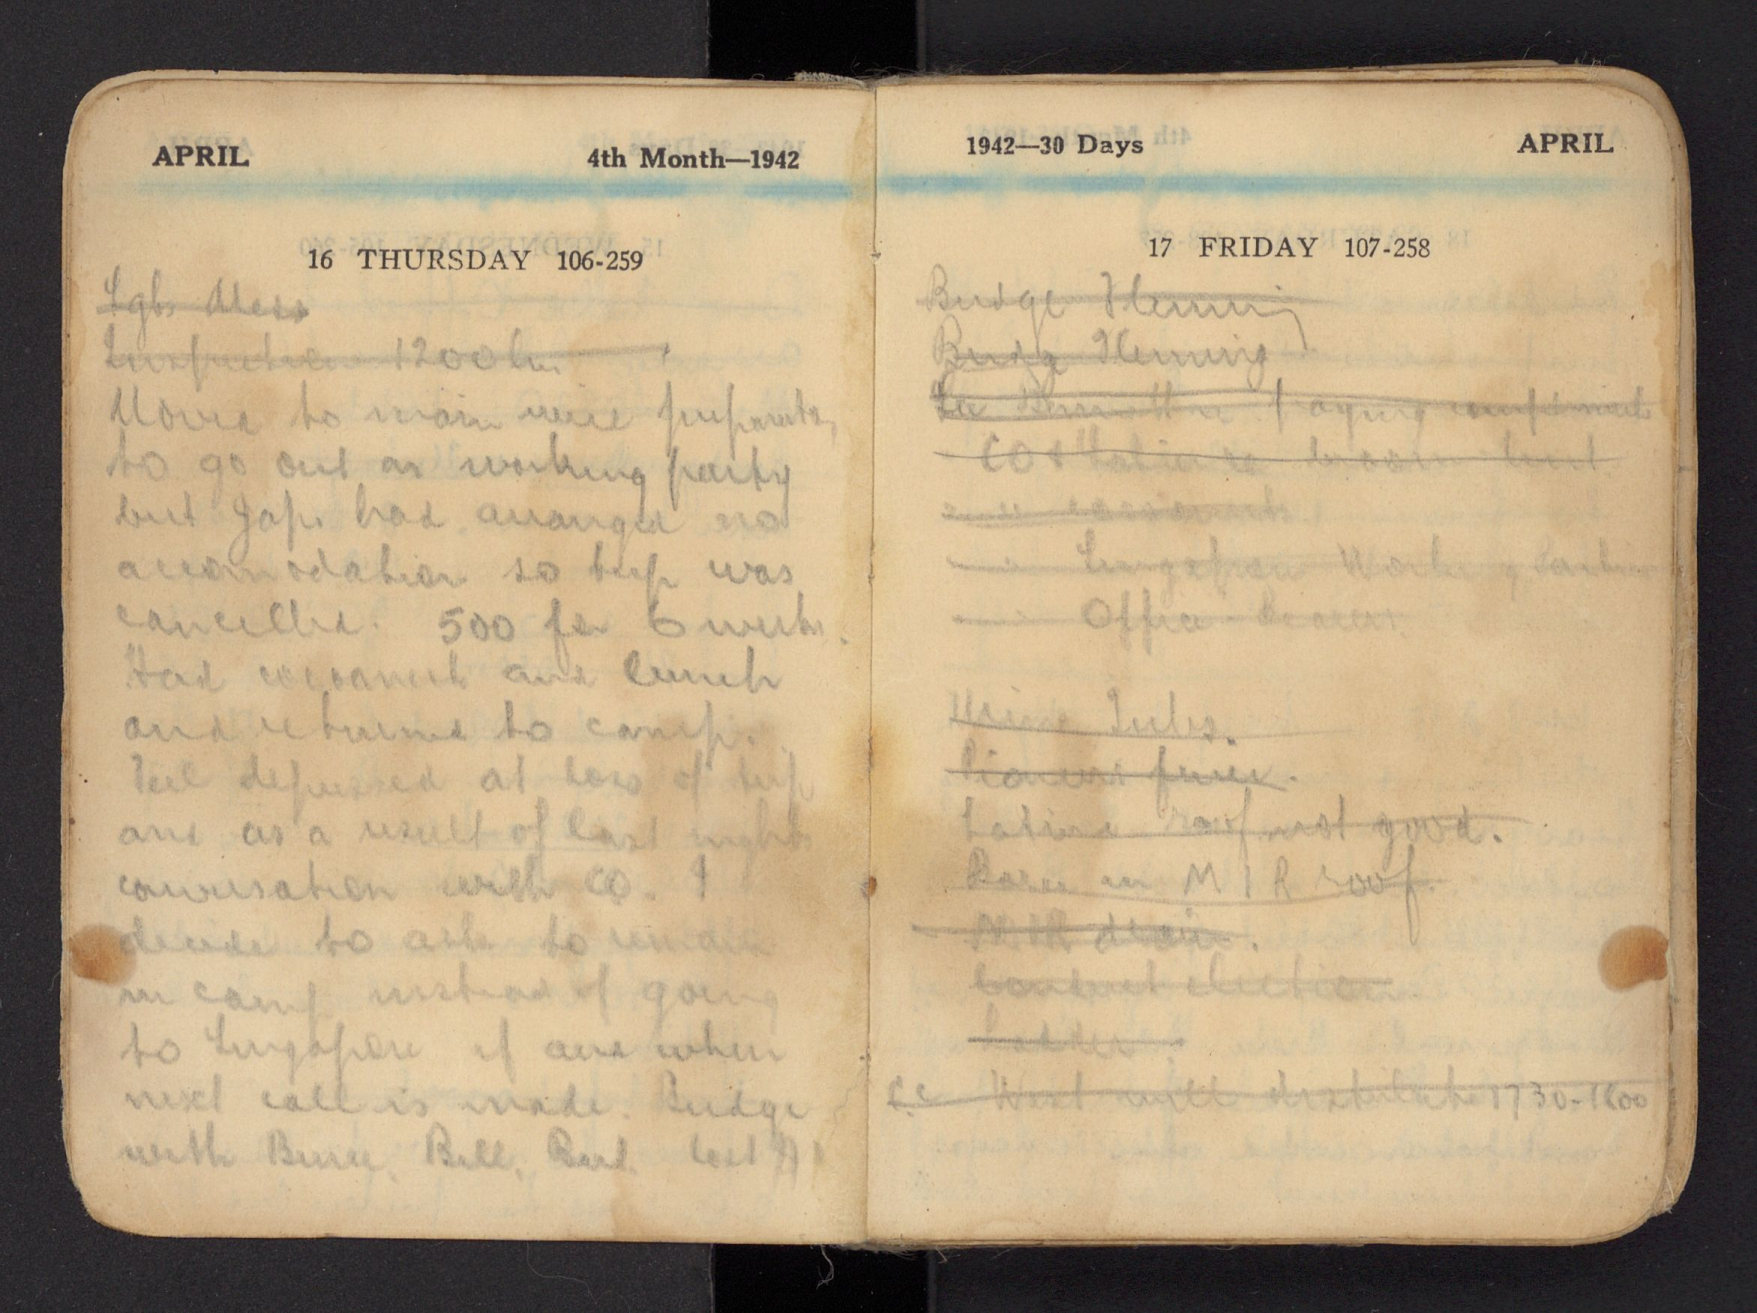 APRIL 4th Month—1942
16 THURSDAY 106-259
Sgts Mess
Inspection 1200 hr
Moved to main were preparing
to go out as working party
but Japs had arranged no
accomodation so trip was
cancelled. 500 for 6 weeks.
Had cocoanut and lunch
and returned to camp.
Feel depressed at loss of trip
and as a result of last nights
conversation with CO. I
decide to ask to remain
in camp instead of going
to Singapore if and when
next call is made. Bridge
with Bill, lost
1942—30 Days APRIL
17 FRIDAY 107-258
Budge Fleming
Budge Fleming
See paying compliments
CO +
Singapore Working Parties
Office
Urine Tubs.
Pioneers fence.
Latrine roof not good.
in M I R roof.
M I R drain.
Conduct election
Ladder.
West will distribute 1730-1800